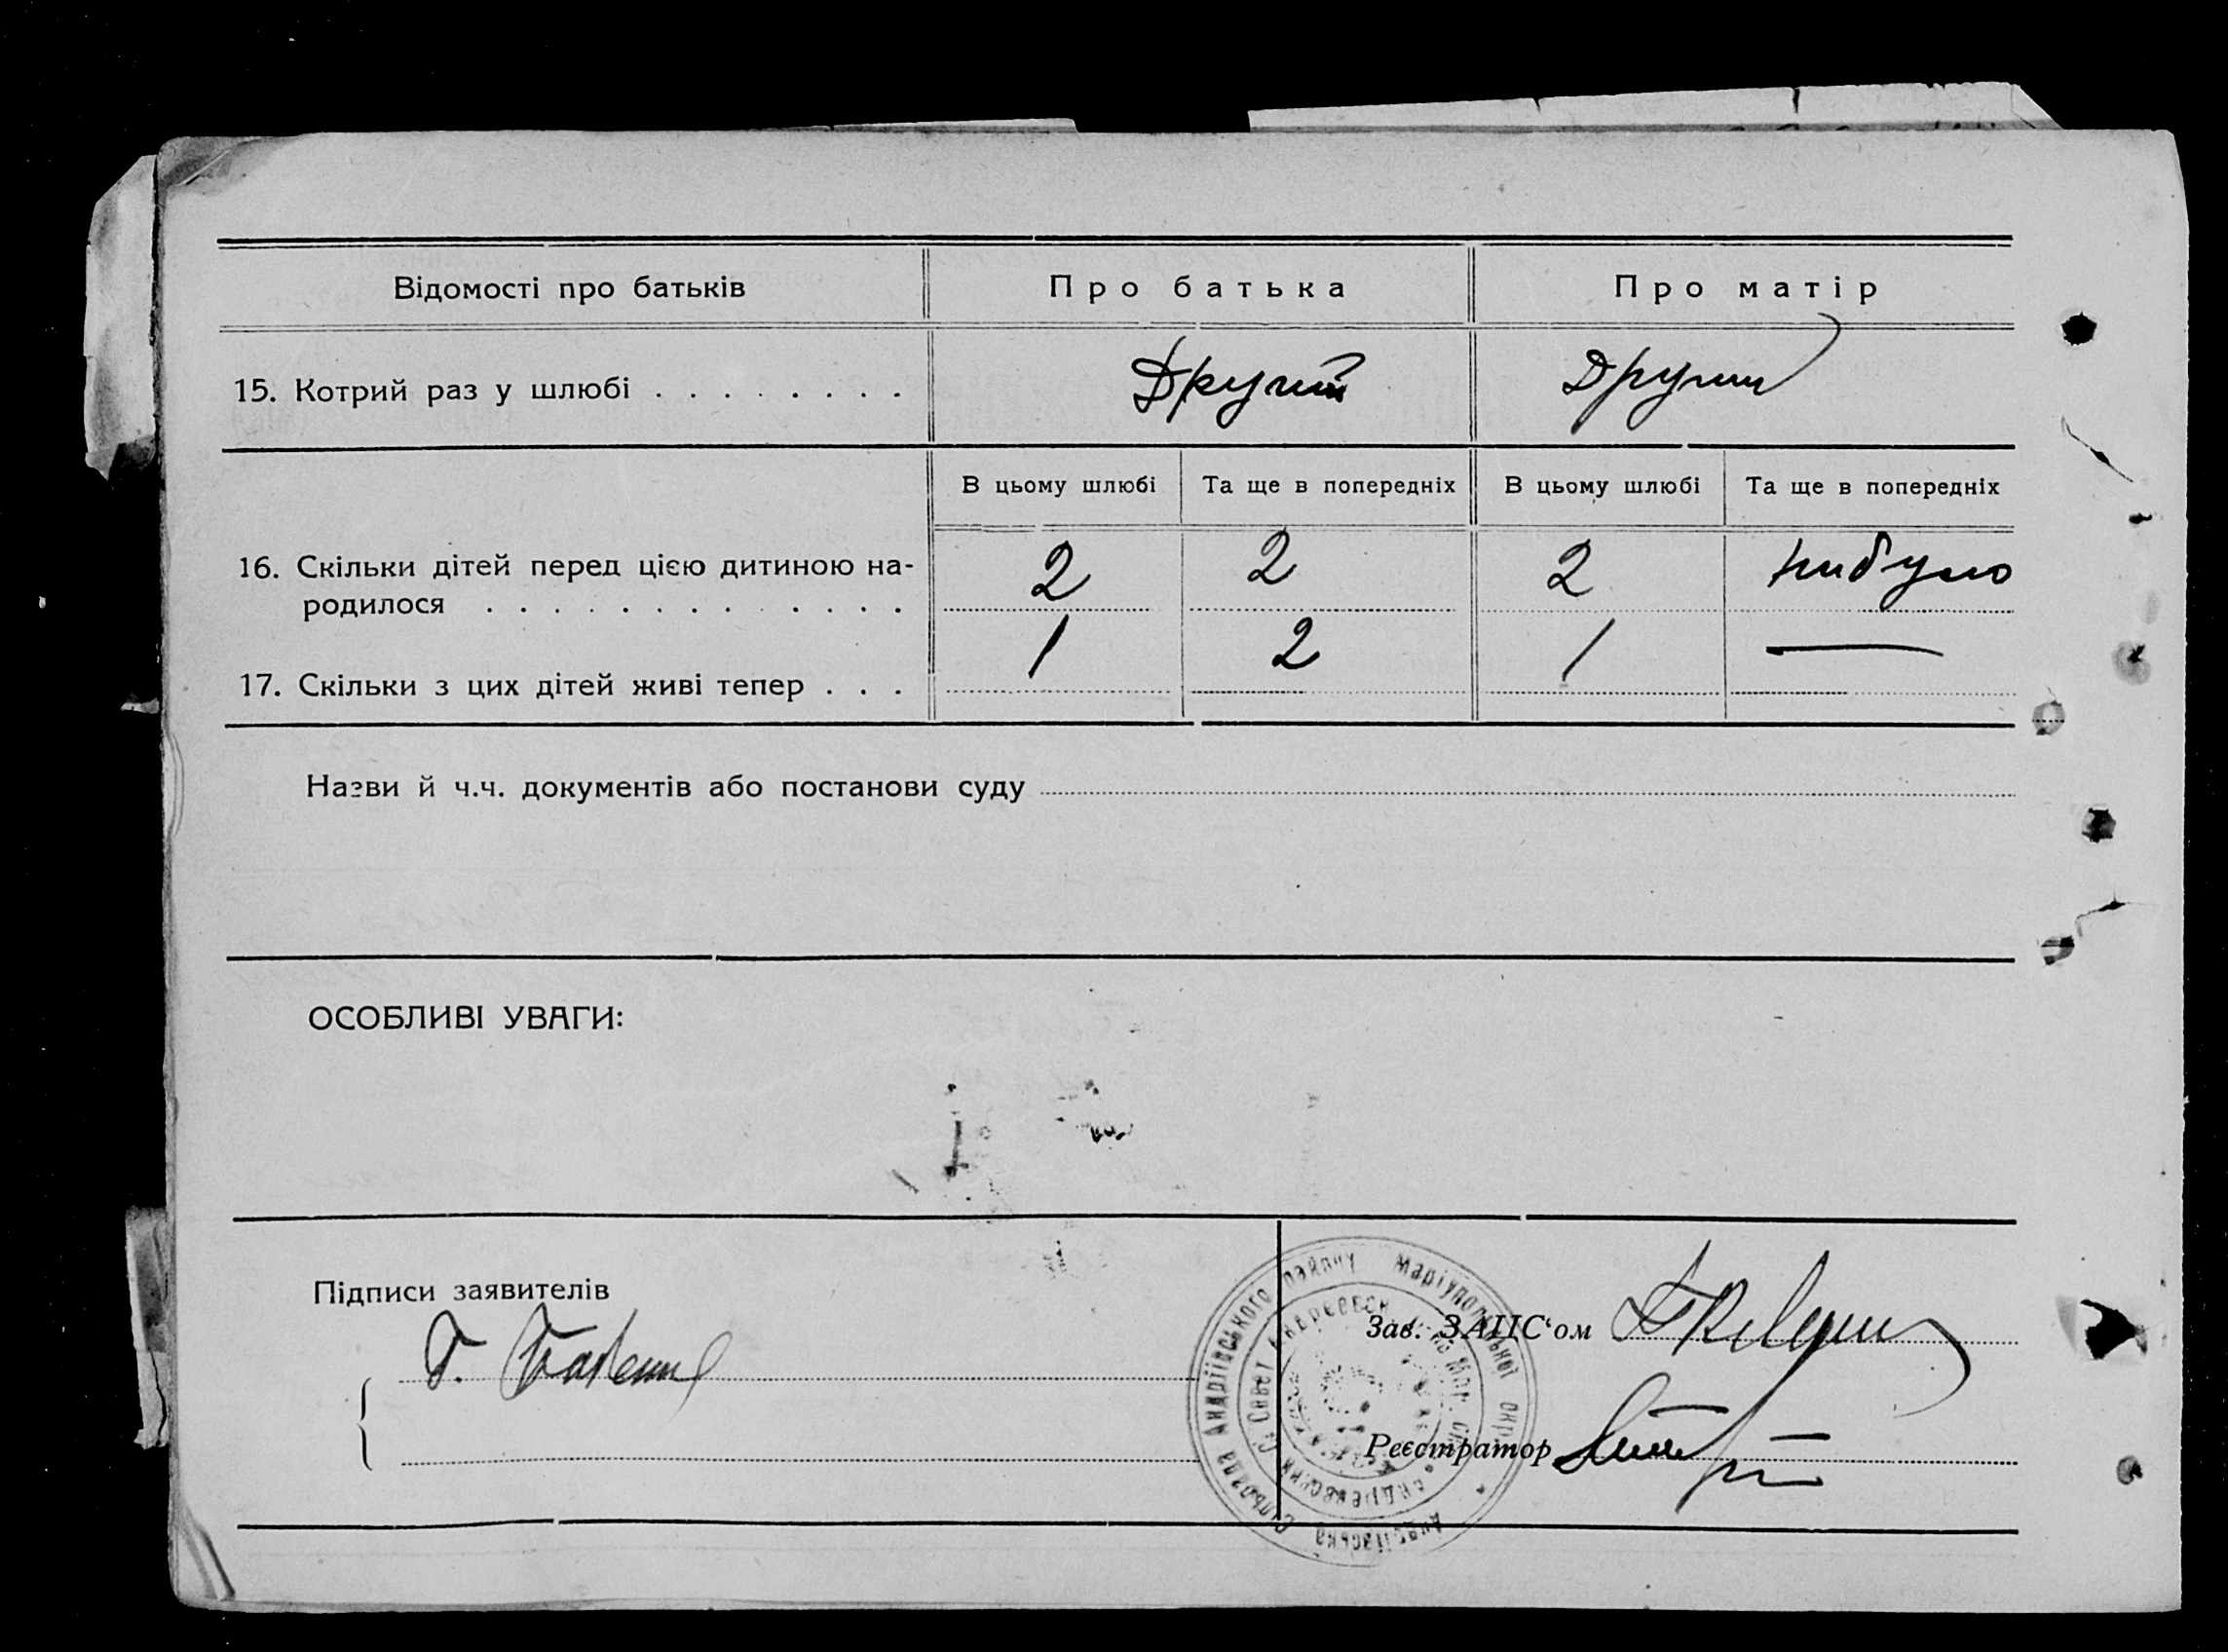 Відомості про батьків
Про батька
Про матір
15. Котрий раз у шлюбі . . . . . . . .
Другий
Другий
В цьому шлюбі
Та ще в попередніх
В цьому шлюбі
Та ще в попередніх
16. Скільки дітей перед цією дитиною на-
родилося . . . . . . . . . . . . .
2
2
2
нибуло
17. Скільки з цих дітей живі тепер . . .
1
2
1
—
Назви й ч.ч. документів або постанови суду
ОСОБЛИВІ УВАГИ:
Підписи заявителів
Зав. ЗАПС‘ом
Реєстратор
Андріївська Сільрада Андріївського району Маріупольської окр.